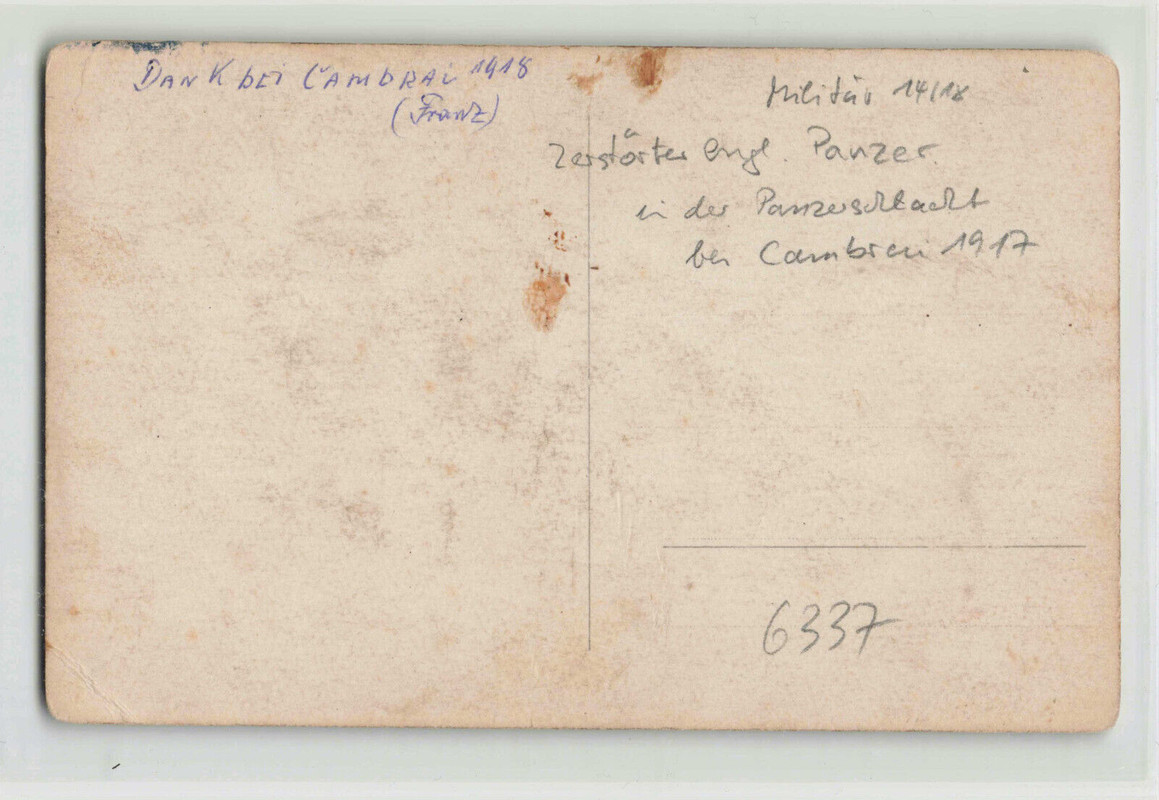 DANK bei CAMBRAI 1918
(Franz)
Militär 14/18
Zerstörter engl. Panzer
in der Panzerschlacht
bei Cambrai 1917
6337